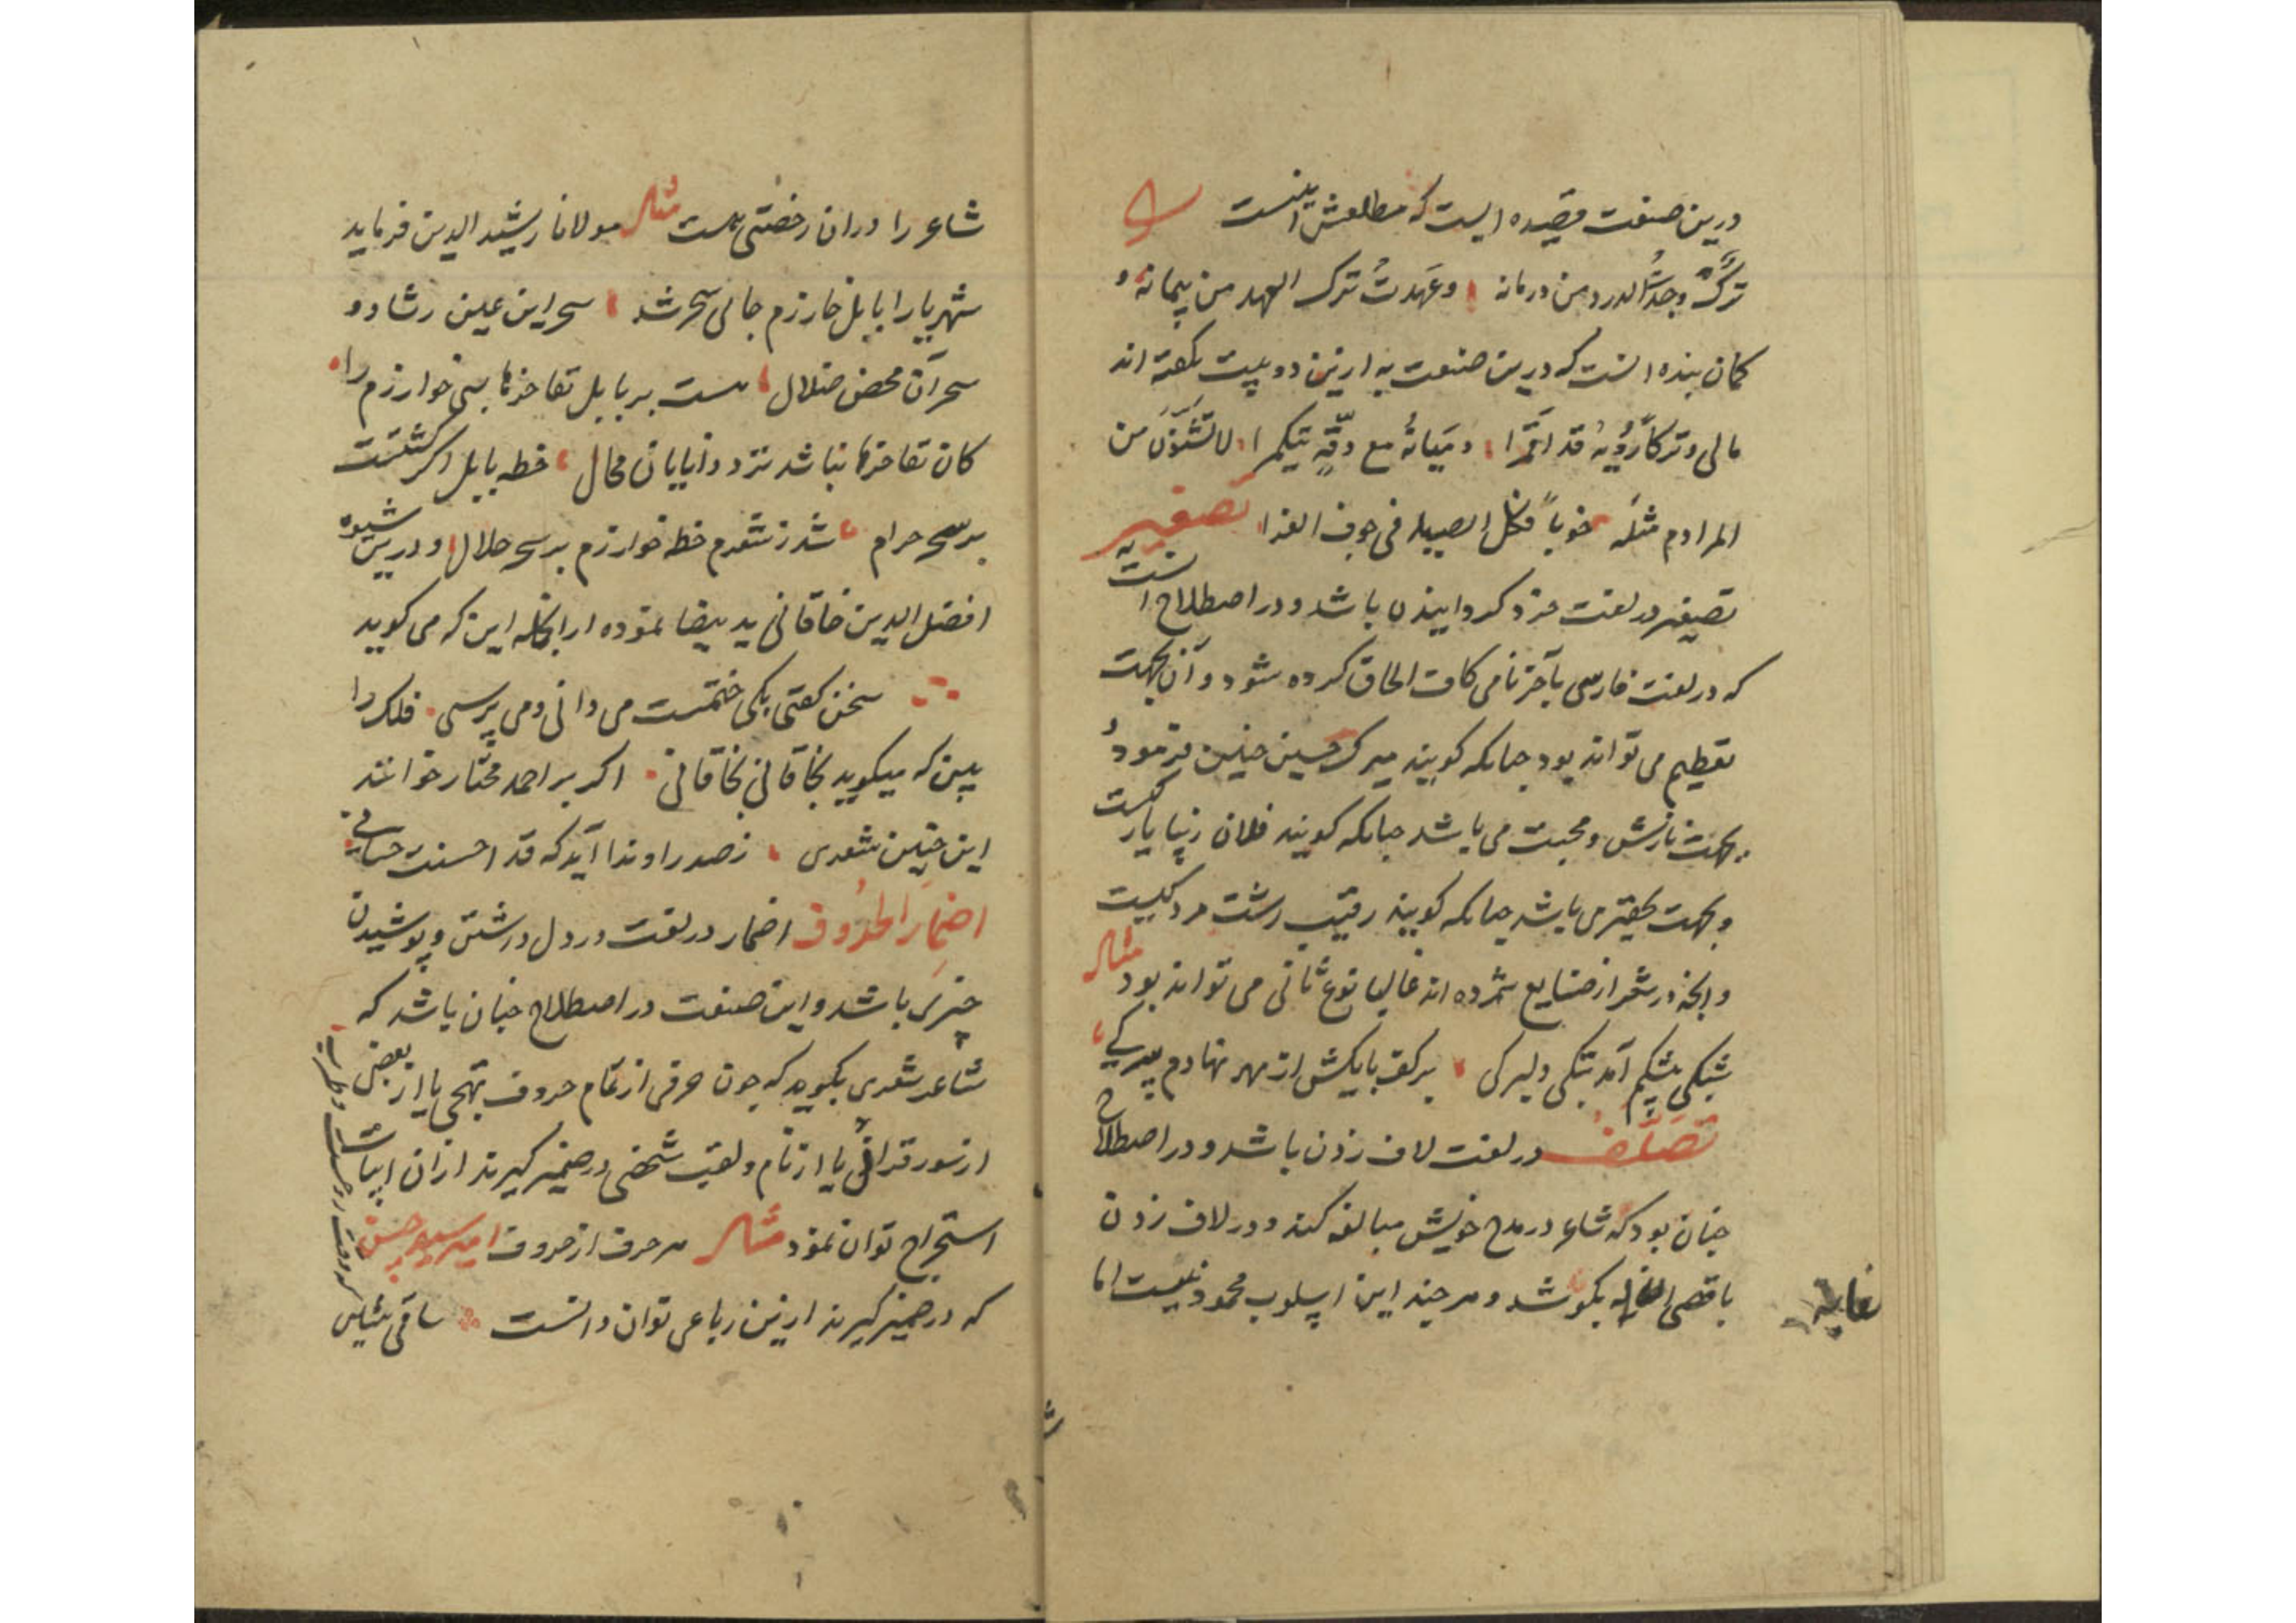 درین صنعت قصیده ایست که مطلعش اینست
ترکٌ وجدتُ الدرد من درمانه وعهدتُ ترک العهد من پیمانه و
کمان بنده انست که درین صنعت به ازین دو بیت نکفته اند
مالی وترکاً رؤیهُ قد اقمرا ومیانهُ مع دقّةٍ من
المرادم مثله خوباً فکل الصید فی جوف الفرا تصغیر
تصغیر در لغت خرد کردانیدن باشد و در اصطلاح انست
که در لغت فارسی بآخر نامی کاف الحاق کرده شود و آن بجهت
تعظیم می تواند بود جنانکه کویند میرک حسین جنین فرمودُ
بجهت نازش و محبت می باشد جنانکه کویند فلان زیبا یارکست
و بجهت تحقیر می باشد جنانکه کویند رقیب زشت مردکیست
و انجه در شعر از صنایع شمرده اند غالبا نوع ثانی می تواند بود مثال
تنکی دلبرکی بر کف پایکش از مهر نهادم سرکی
تصلّف در لغت لاف زدن باشد و در اصطلاح
جنان بود که شاعر در مدح خویش مبالغه کند و در لاف زدن
باقصی الغایه بکوشد و هر جند این اسلوب محمود نیست اما
غایه
شاعر را دران رخصتی هست مثال مولانا رشید الدین فرماید
شهریارا بابل خارزم جای سحر شد سحر این عین رشاد و
سحر آن محض ضلال هست بر بابل تفاخرها بسی خوارزم را
کان تفاخرها نباشد نزد دانایان محال خطه بابل اکر کشتست
بر سحر حرام شد ز شعرم خطه خوارزم بر سحر حلال و درین شیوه
افضل الدین خاقانی ید بیضا نموده از انجمله این که می کوید
سخن کفتی بکی ختمست می دانی و می پرسی فلک را
بین که میکوید بخاقانی بخاقانی اکر بر احمد مختار خوانند
این جنین شعری ز صدر او ندا آید که قد احسنت حسانی
اضمار الحروف اضمار در لغت در دل داشتن و پوشیدن
چیزی باشد و این صنعت در اصطلاح جنان باشد که
شاعر شعری بکوید که جون حرفی از تمام حروف تهجی یا از بعضی
از سور قرانی یا از نام و لقب شخصی در ضمیر کیرند ازان ابیات
استخراج توان نمود مثال هر حرف از حروف امیر سید حسن
که در ضمیر کیرند ازین رباعی توان دانست ساقی